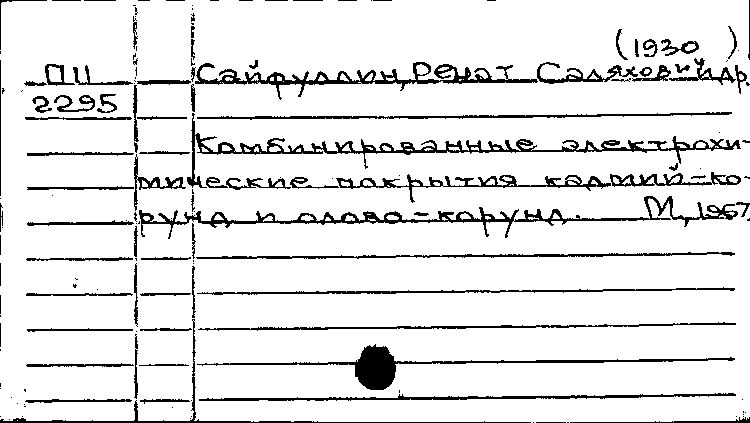 (1930 )
ПII Сайфуллин, Ренат Саляхович и др.
2295
Комбинированные электрохи-
мические покрытия кадмий-ко-
рунд и олово-корунд. М, 1967